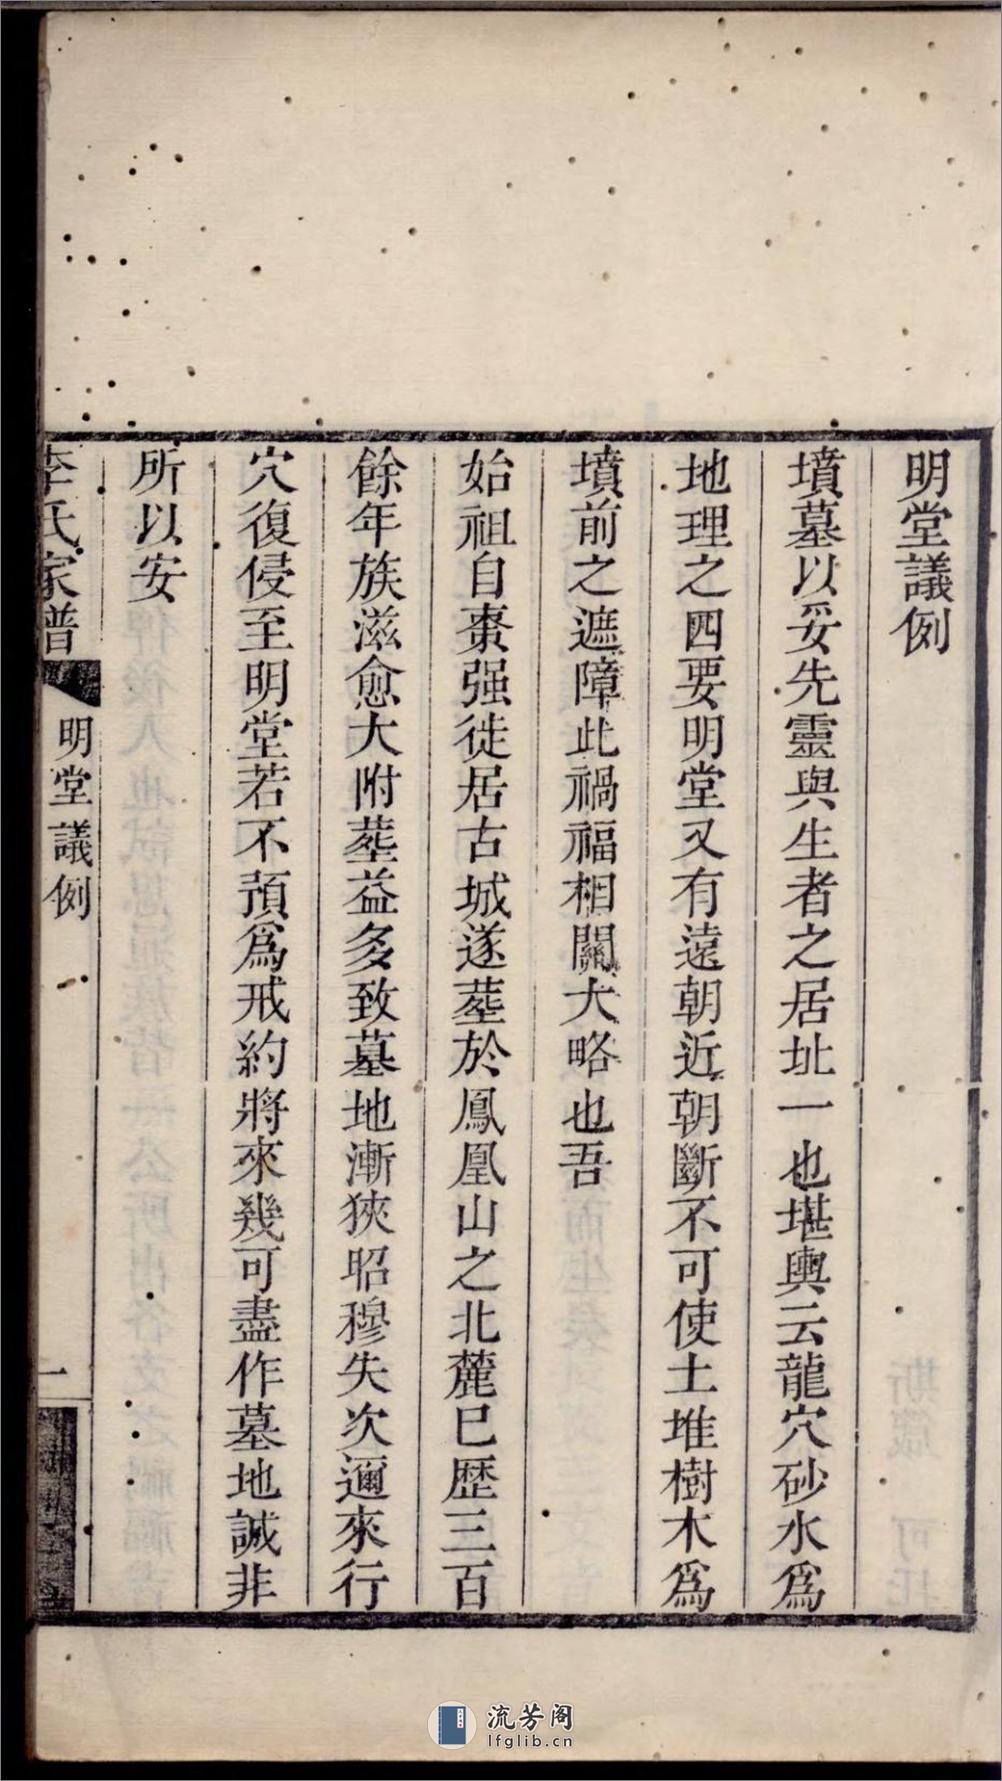 明堂議例
墳墓以妥先靈與生者之居址一也堪輿云龍穴砂水爲
地理之四要明堂又有遠朝近朝斷不可使土堆樹木爲
墳前之遮障此禍福相關大略也吾
始祖自棗强徙居古城遂塟於鳳凰山之北麓已歷三百
餘年族滋愈大附塟益多致墓地漸狹昭穆失次邇來行
穴復侵至明堂若不預爲戒約將來幾可盡作墓地誠非
所以安
李氏家譜
明堂議例
一
流芳阁
lfglib.cn